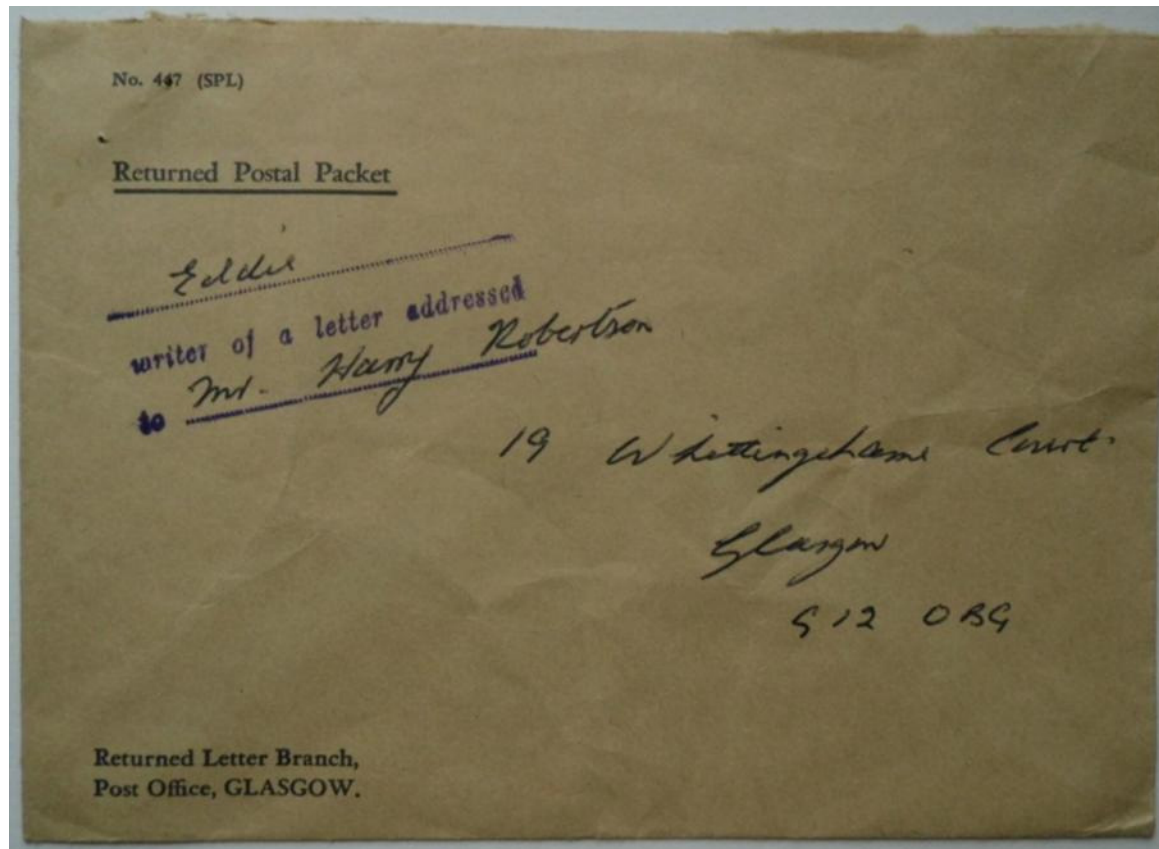 No. 447 (SPL)
Returned Postal Packet
Eddie
writer of a letter addressed
to Mr. Harry Robertson
19 Whittinghame Court.
Glasgow
G12 0BG
Returned Letter Branch,
Post Office, GLASGOW.